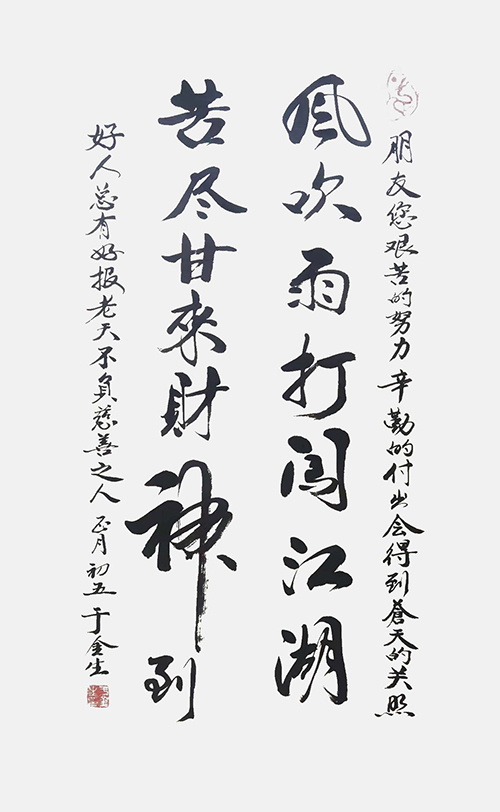 朋友您艰苦的努力辛勤的付出会得到蒼天的关照
风吹雨打闯江湖
苦尽甘來财神到
好人总有好报老天不负慈善之人 正月初五 于金生